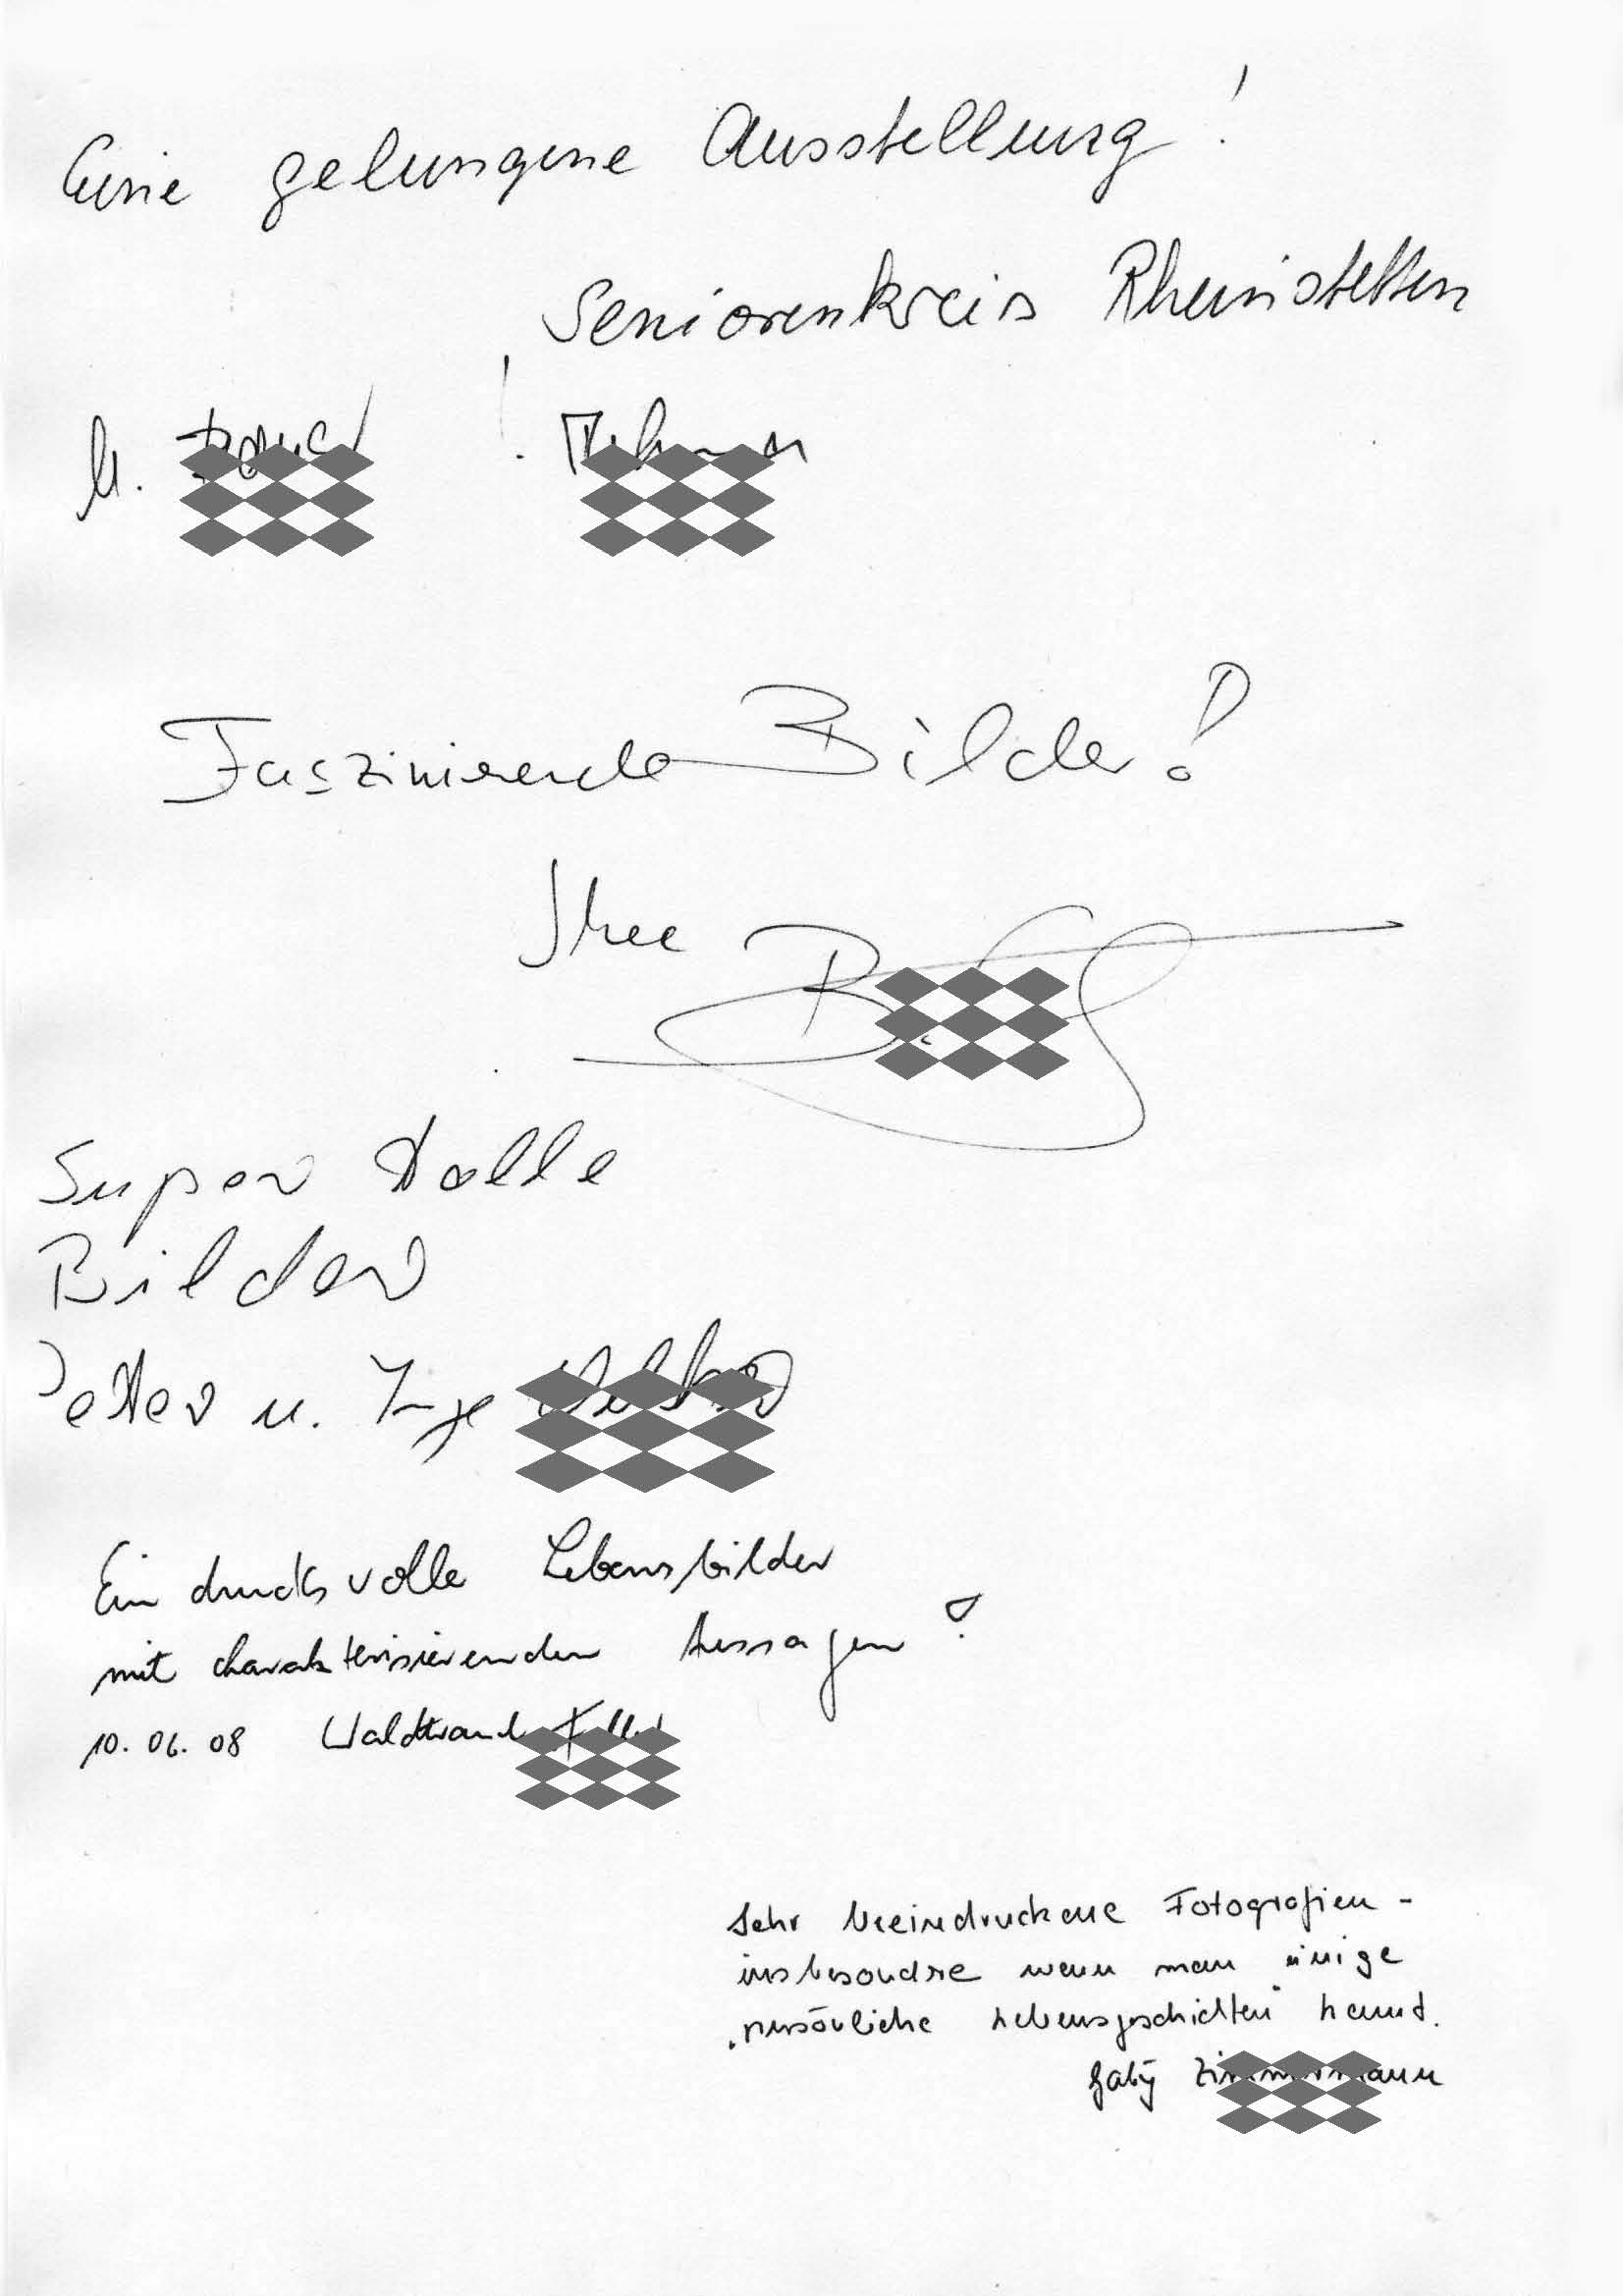 Eine gelungene Ausstellung!
Seniorenkreis Rheinstetten
Faszinierende Bilder!
Ihre B
Super tolle
Bilder
Petter u. Inge
Eindrucksvolle Lebensbilder
mit charakterisierenden Aussagen!
10.06.08 Waldtraud
Sehr beeindruckene Fotografien -
insbesondre wenn man einige
"persönliche Lebensgeschichten" kennt.
Gaby